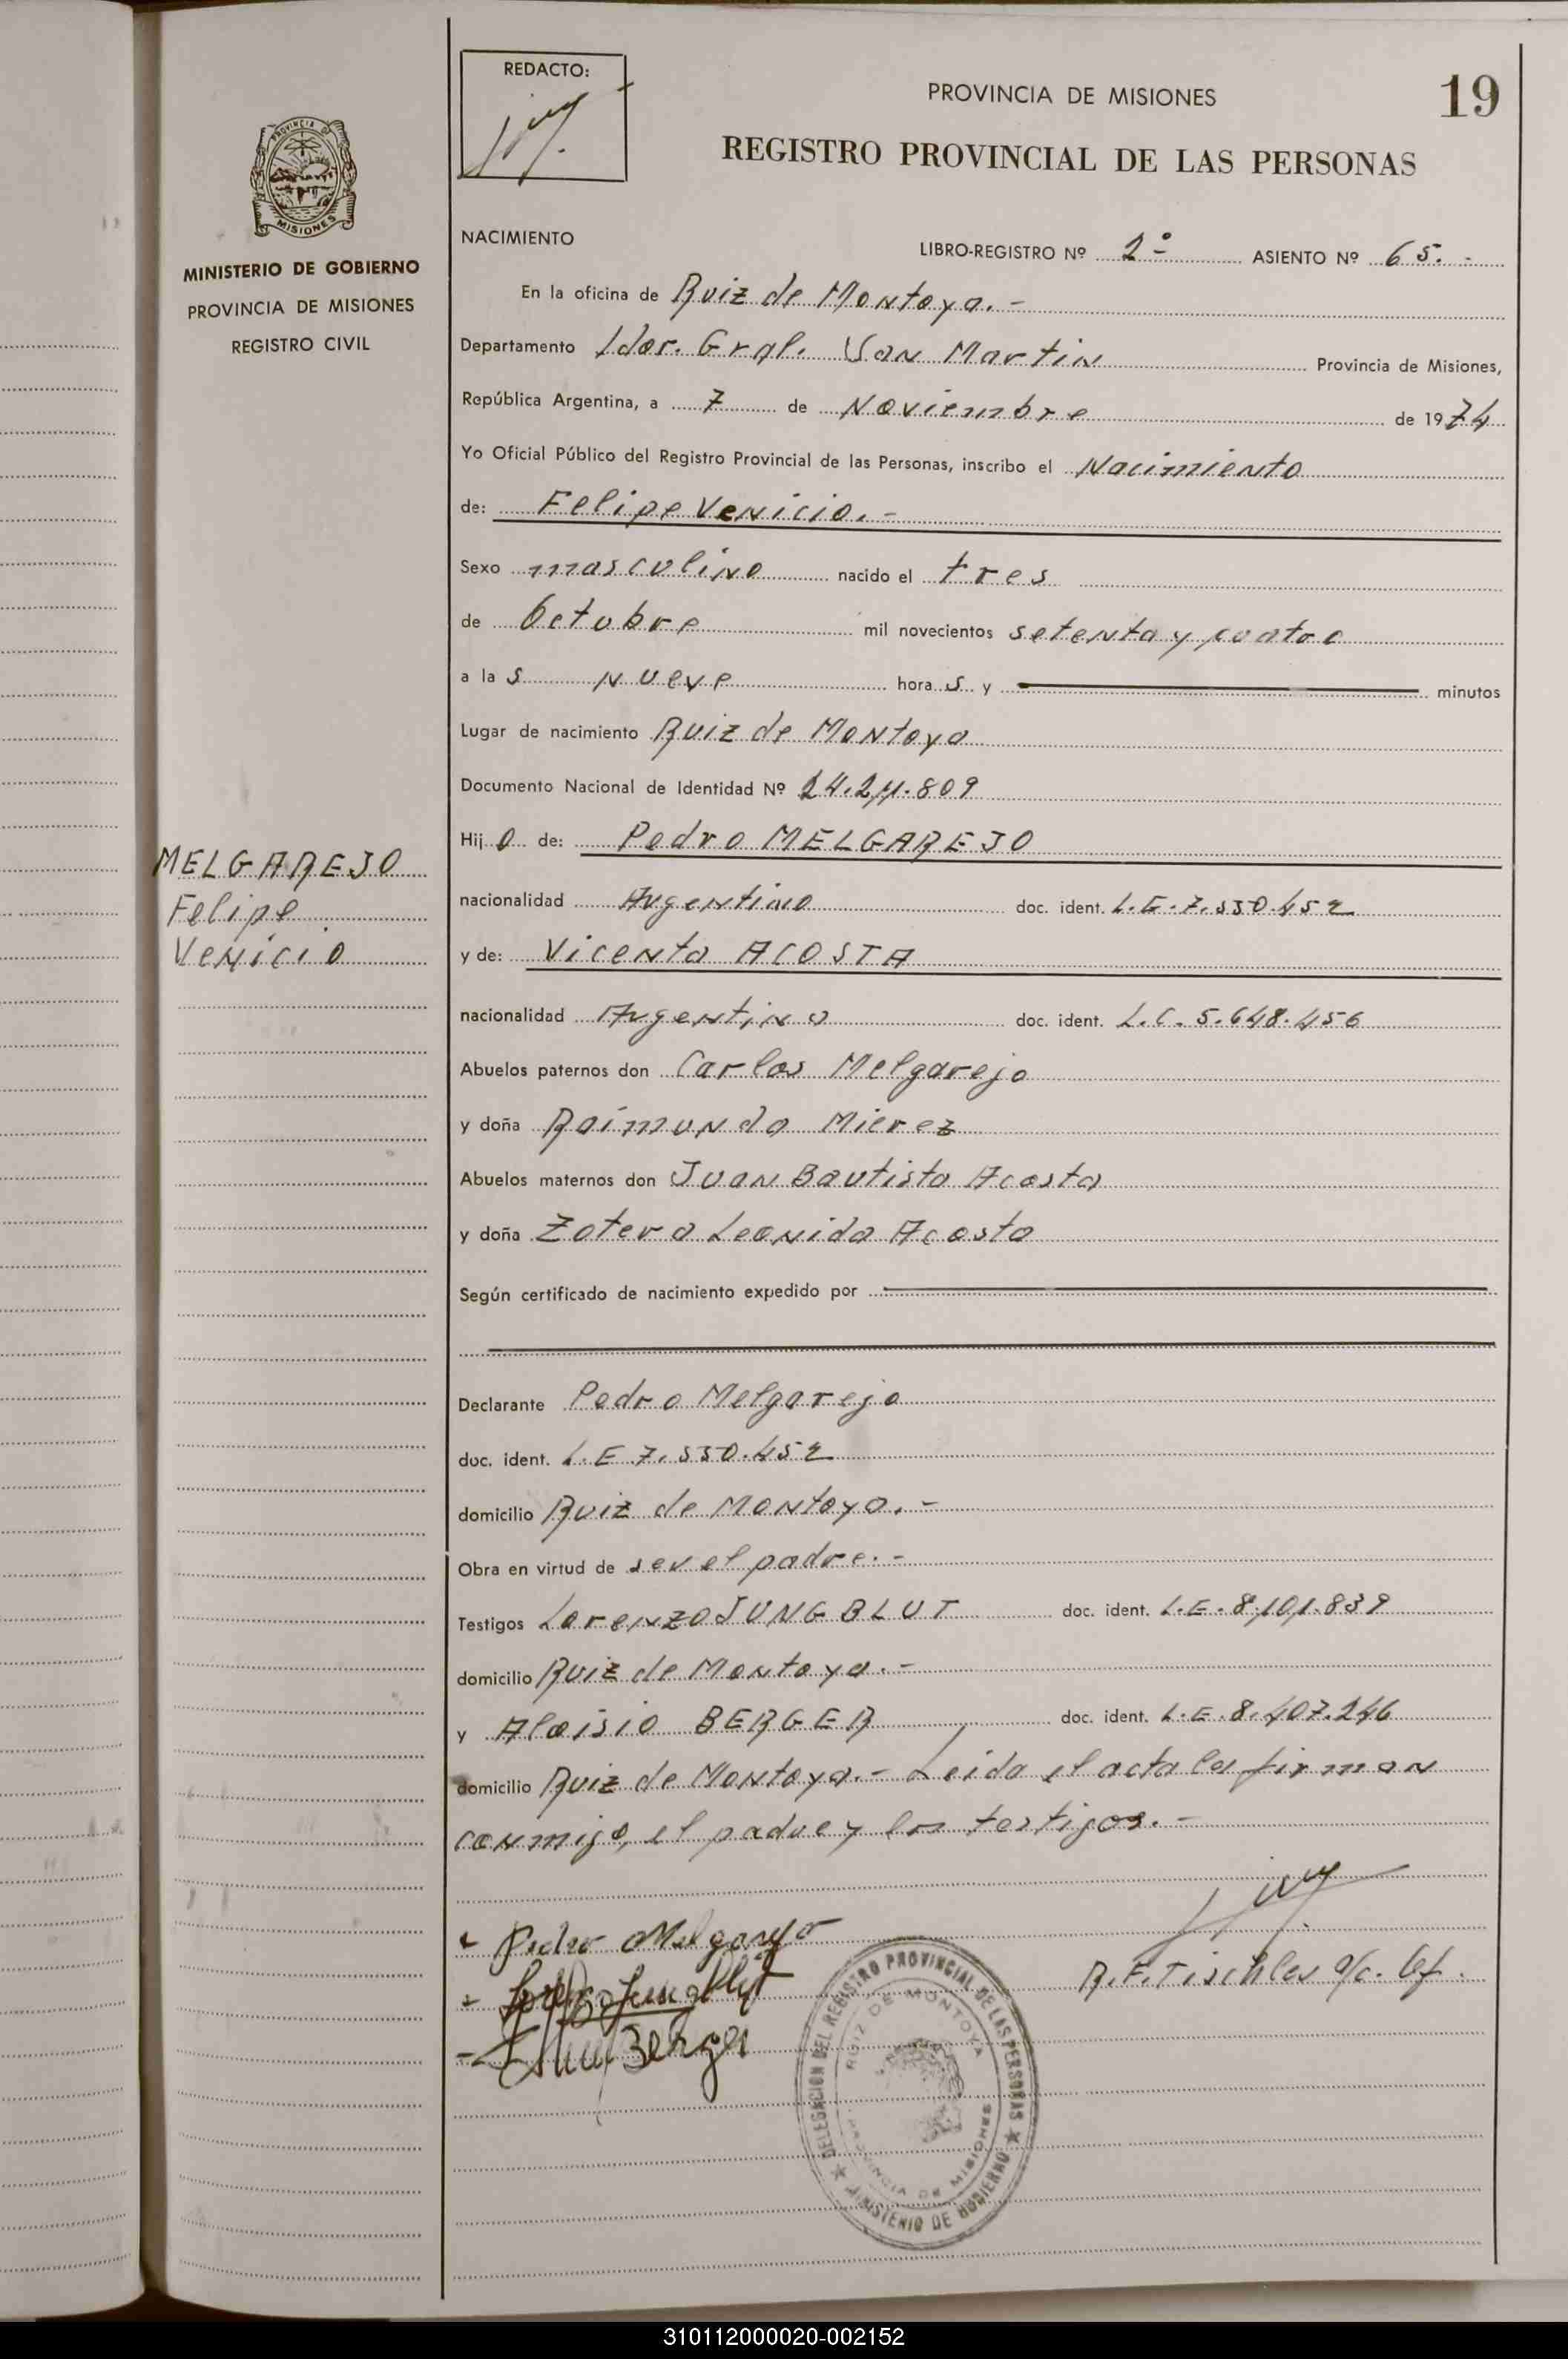 REDACTO:
PROVINCIA DE MISIONES
19
REGISTRO PROVINCIAL DE LAS PERSONAS
PROVINCIA DE
MISIONES
MINISTERIO DE GOBIERNO
PROVINCIA DE MISIONES
REGISTRO CIVIL
NACIMIENTO
LIBRO-REGISTRO Nº 2º ASIENTO Nº 65.-
En la oficina de Ruiz de Montoya.-
Departamento Ldor. Gral. San Martin Provincia de Misiones,
República Argentina, a 7 de Noviembre de 1974
Yo Oficial Público del Registro Provincial de las Personas, inscribo el Nacimiento
de: Felipe Venicio.-
Sexo masculino nacido el tres
de Octubre mil novecientos setenta y cuatro
a la s nueve hora s y minutos
Lugar de nacimiento Ruiz de Montoya
Documento Nacional de Identidad Nº 24.211.809
Hij o de: Pedro MELGAREJO
MELGAREJO
Felipe
Venicio
nacionalidad Argentino doc. ident. L.E.7.550.452
y de: Vicenta ACOSTA
nacionalidad Argentina doc. ident. L.C. 5.648.456
Abuelos paternos don Carlos Melgarejo
y doña Raimunda Mierez
Abuelos maternos don Juan Bautista Acosta
y doña Zotera Leonida Acosta
Según certificado de nacimiento expedido por
Declarante Pedro Melgarejo
doc. ident. L.E 7.550.452
domicilio Ruiz de Montoya.-
Obra en virtud de ser el padre.-
Testigos Lorenzo JUNGBLUT doc. ident. L.E.8.101.839
domicilio Ruiz de Montoya.-
y Aloisio BERGER doc. ident. L.E.8.407.246
domicilio Ruiz de Montoya.- Leida el acta la firman
conmigo, el padre y los testigos.-
Pedro Melgarejo
R.F. Tischler a/c. Of.
Berger
DELEGACION DEL REGISTRO PROVINCIAL DE LAS PERSONAS
RUIZ DE MONTOYA
PROVINCIA DE MISIONES
MINISTERIO DE GOBIERNO
310112000020-002152